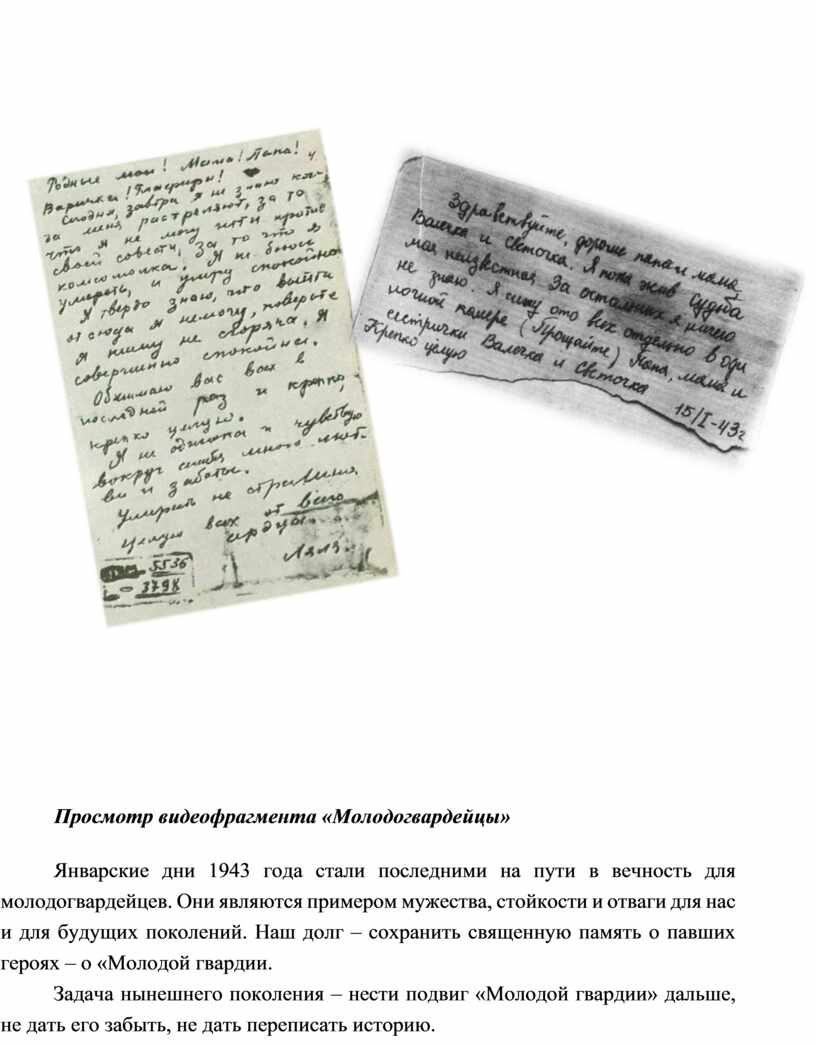 Родные мои! Мама! Папа!
Варички! Глафиры!
Сегодня, завтра я не знаю ког-
да меня растреляют, за то
что я не могу итти против
своей совести, за то что я
комсомолка. Я не боюсь
умереть, и умру спокойно
Я твердо знаю, что выйти
отсюда я немогу, поверьте
Я пишу не сгоряча. Я
совершенно спокойна.
Обнимаю вас всех в
последний раз и крепко,
крепко целую.
Я не одинока и чувствую
вокруг себя много люб-
ви и заботы.
Умирать не страшно
целую всех от всего
сердца.
Ляля.
5536
3798
Здравствуйте, дорогие папа и мама,
Валечка и Светочка. Я пока жив судьба
моя неизвестная. За остальных я ничего
не знаю. Я сижу ото всех отдельно в оди
ночной камере (Прощайте) Папа, мама и
сестрички Валечка и Светочка
Крепко целую
15/I-43г
Просмотр видеофрагмента «Молодогвардейцы»
Январские дни 1943 года стали последними на пути в вечность для
молодогвардейцев. Они являются примером мужества, стойкости и отваги для нас
и для будущих поколений. Наш долг – сохранить священную память о павших
героях – о «Молодой гвардии.
Задача нынешнего поколения – нести подвиг «Молодой гвардии» дальше,
не дать его забыть, не дать переписать историю.